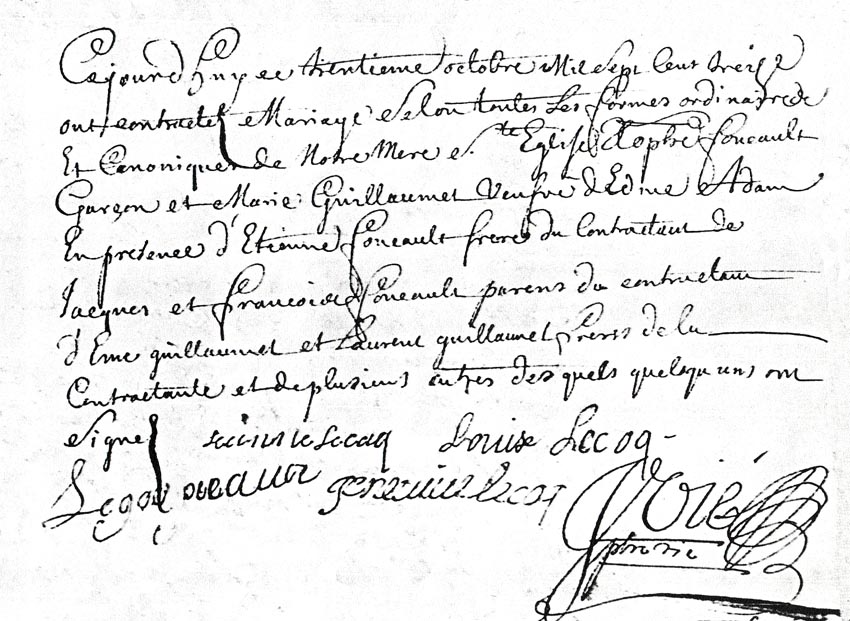 Cejourd huy ee trentieme octobre Mil Sept Cent treize
ont contracté Mariage Selon toutes Les formes ordinaires
Et Canoniques de Notre Mere Ste Eglise foucault
Garçon et Marie Guillaumet veufve d'Edme Adam
En presence d'Etienne foucault frere du Contractant de
Jacques et francois foucault parens du contractant
d'Eme guillaumet et Laurent guillaumet freres de la
Contractante et de plusieurs autres des quels quelqu uns ont
Signé Lecoq Louise Lecoq
Lecoq